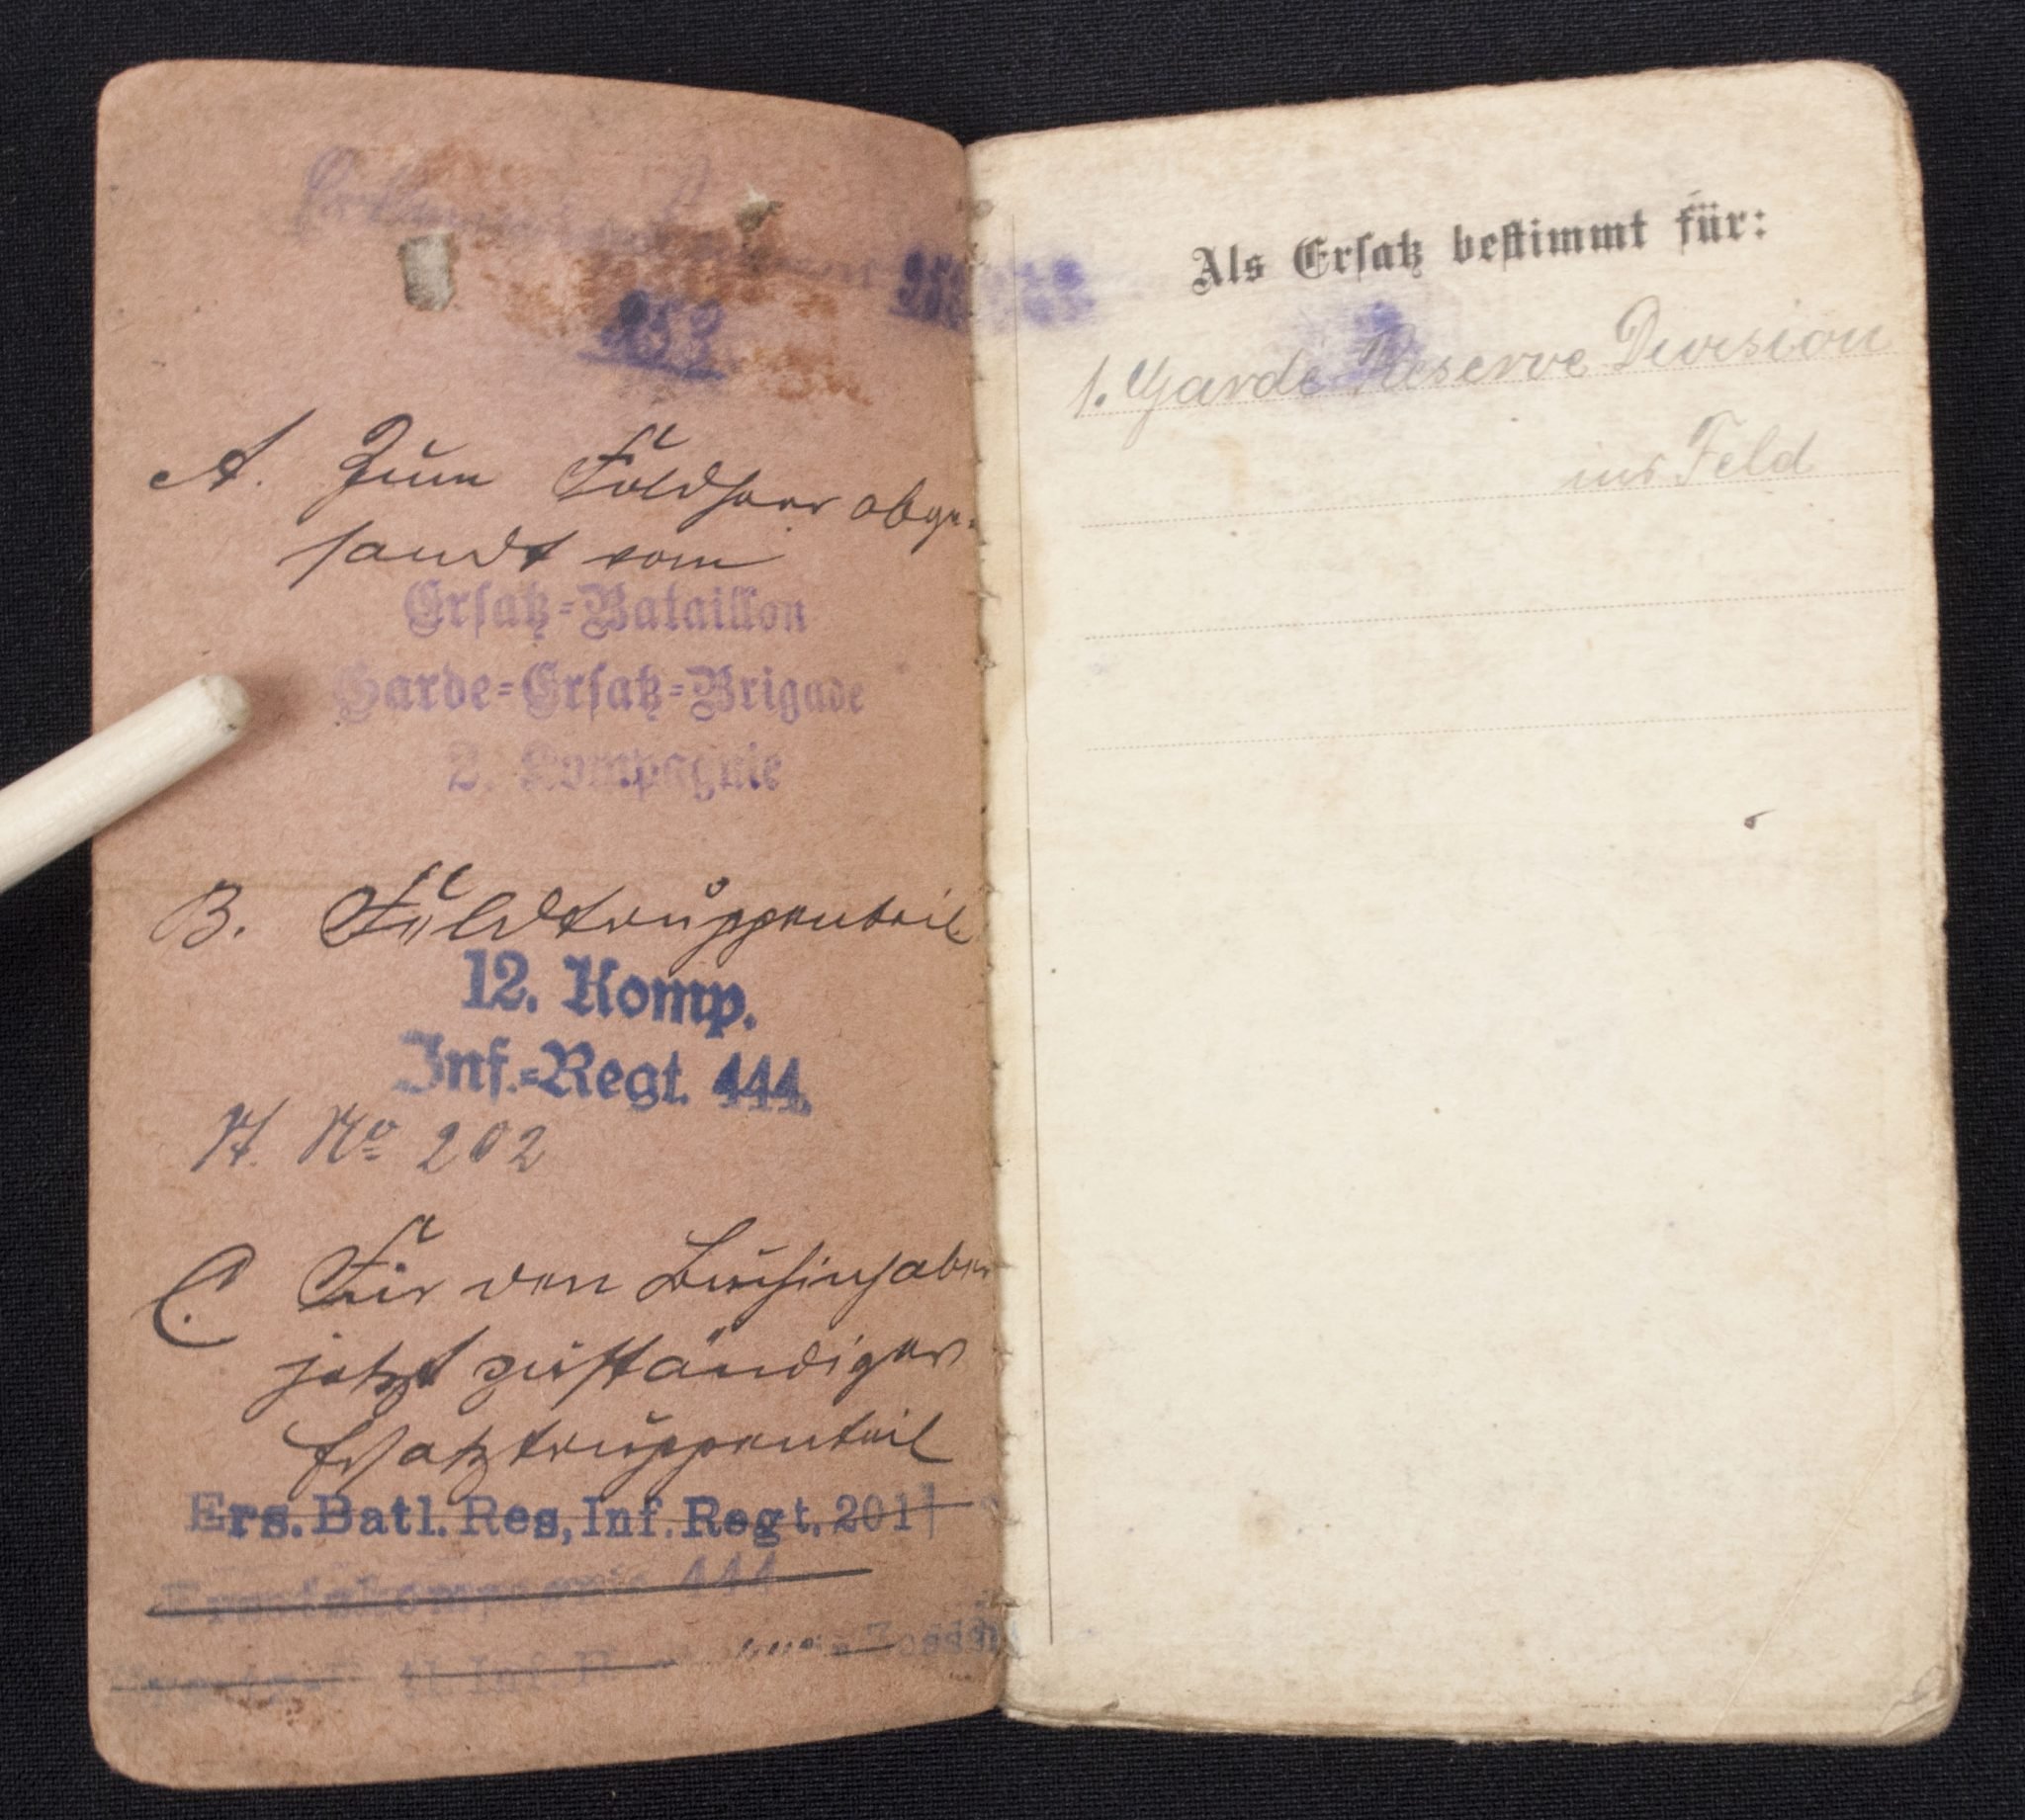 253
A. Zum Feldheer abge-
sandt vom
Ersatz-Bataillon
Garde-Ersatz-Brigade
2. Kompagnie
B. Feldtruppenteil
12. Komp.
Inf.-Regt. 444.
No 202
C. Für den Buchinhaber
jetzt zuständiger
Ersatztruppenteil
Ers. Batl. Res, Inf. Regt. 201
444
Inf.
Zossen
Als Ersatz bestimmt für:
1. Garde Reserve Division
ins Feld